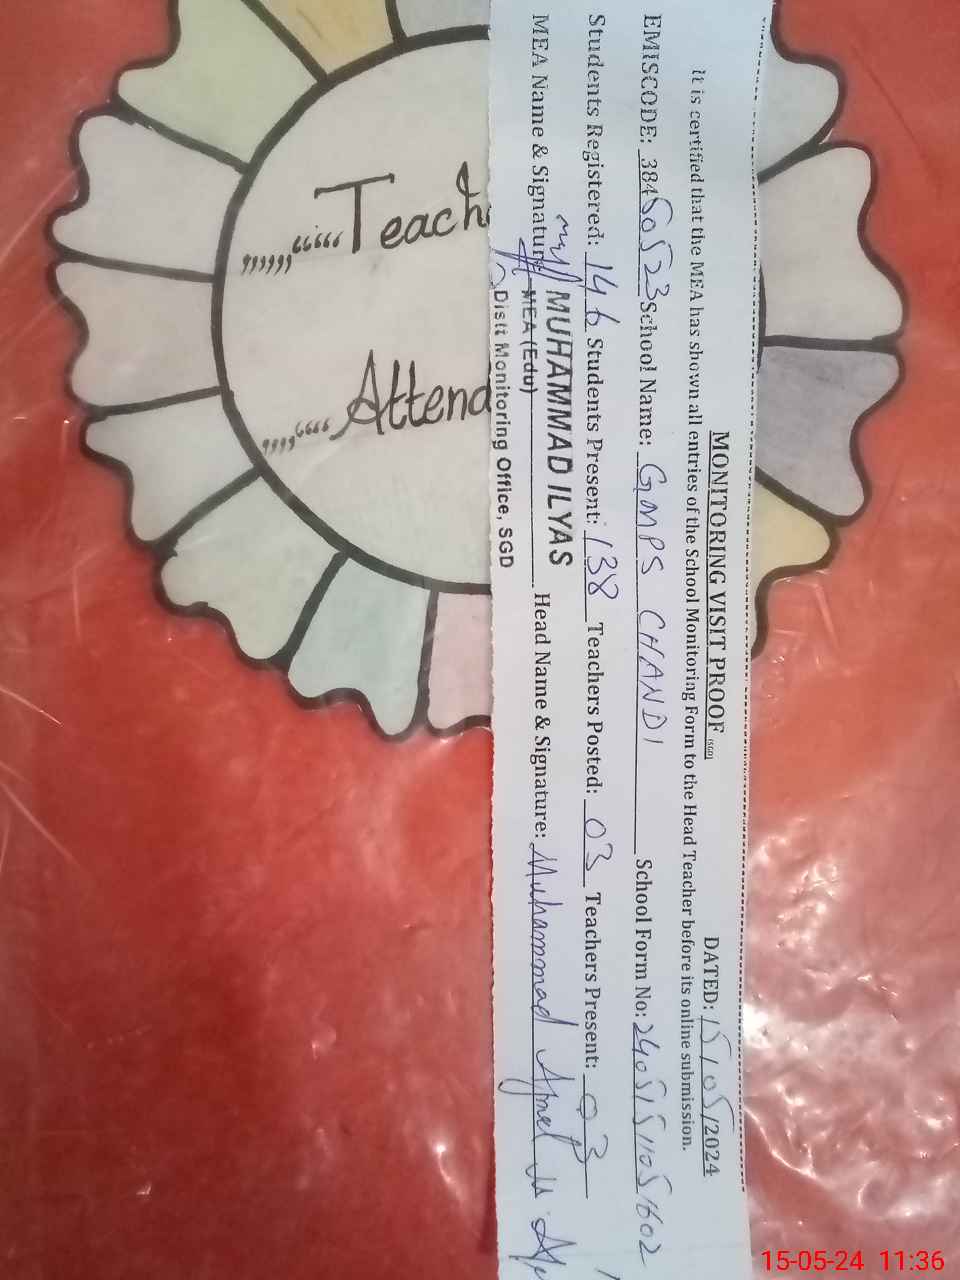 MONITORING VISIT PROOF (SGD) DATED: 15/05/2024
It is certified that the MEA has shown all entries of the School Monitoring Form to the Head Teacher before its online submission.
EMISCODE: 38450523 School Name: GMPS CHANDI School Form No:
Students Registered: 146 Students Present: 138 Teachers Posted: 03 Teachers Present: 03
MEA Name & Signature: MUHAMMAD ILYAS Head Name & Signature: Muhammad
MEA (Edu)
Distt Monitoring Office, SGD
,,,,,,“““Teach
,,,,““Attend
15-05-24 11:36